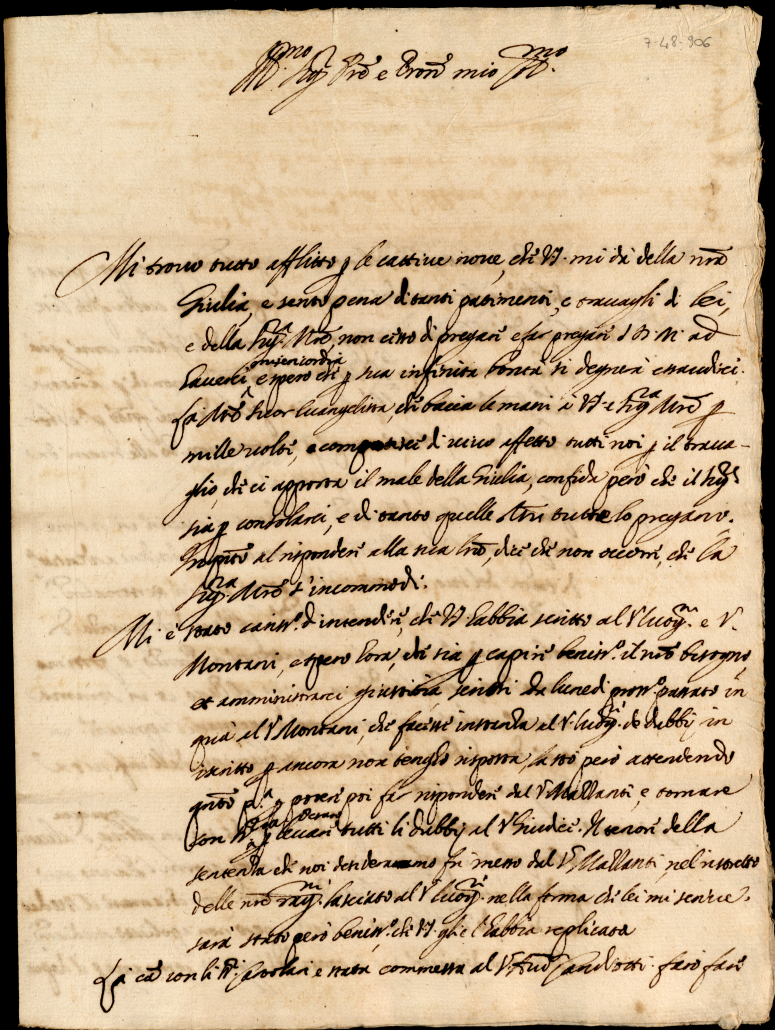 7-48-906
Ill.mo Sig.r P.re e Pron.e mio Oss.mo
Mi trovo tutto afflitto p le cattive nove, che VS. mi dà della nra
Giulia, e sento pena di tanti patimenti, e travagli di lei,
e della Sig.ra Mre, non cesso di pregare e far pregare S.D.M. ad
haverci misericordia, e spero che p sua infinita bontà si degnerà essaudirci.
La Mre Suor Evangelista, che bacia le mani à VS. e Sig.ra Mre p
mille volte, e compatisce di vivo affetto tutti noi p il trava-
glio, che ci apporta il male della Giulia, confida però che il Sig.re
sia p consolarci, e di tanto quelle Mri tutte lo pregano.
In al rispondere alla sua lra, dice che non occorre, che la
Sig.ra Mre s'incommodi.
Mi è stato cariss.o d'intendere, che VS. habbia scritto al S.r e S.r
Montani, e spero hora, che sia p capire beniss.o il nro bisogno,
et amministrarci giustitia, scrissi da lunedi pross.o passato in
quà al S.r Montani, che facesse instanza al S.r de dubbij in
iscritto p ancora non tengo risposta, la stò però attendendo
p.a p poter poi far rispondere dal S.r Mallanti, e tornare
con p levare tutti li dubbij al S.r Giudice. Il tenore della
sentenza che noi desideramo fù messo dal S.r Mallanti nel ristretto
delle nre rag.ni lasciato al S.r nella forma che lei mi scrive.
sarà stato però beniss.o, che VS. glie l'habbia replicato
La ca con li SS.ri è stata commessa al S.r Aud.re farò fare